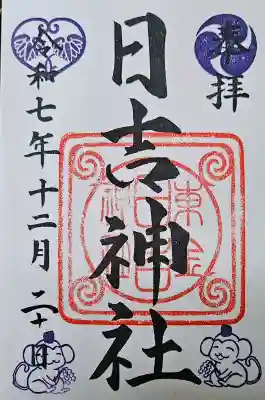 奉拝
日吉神社
令和七年十二月二十日
東金